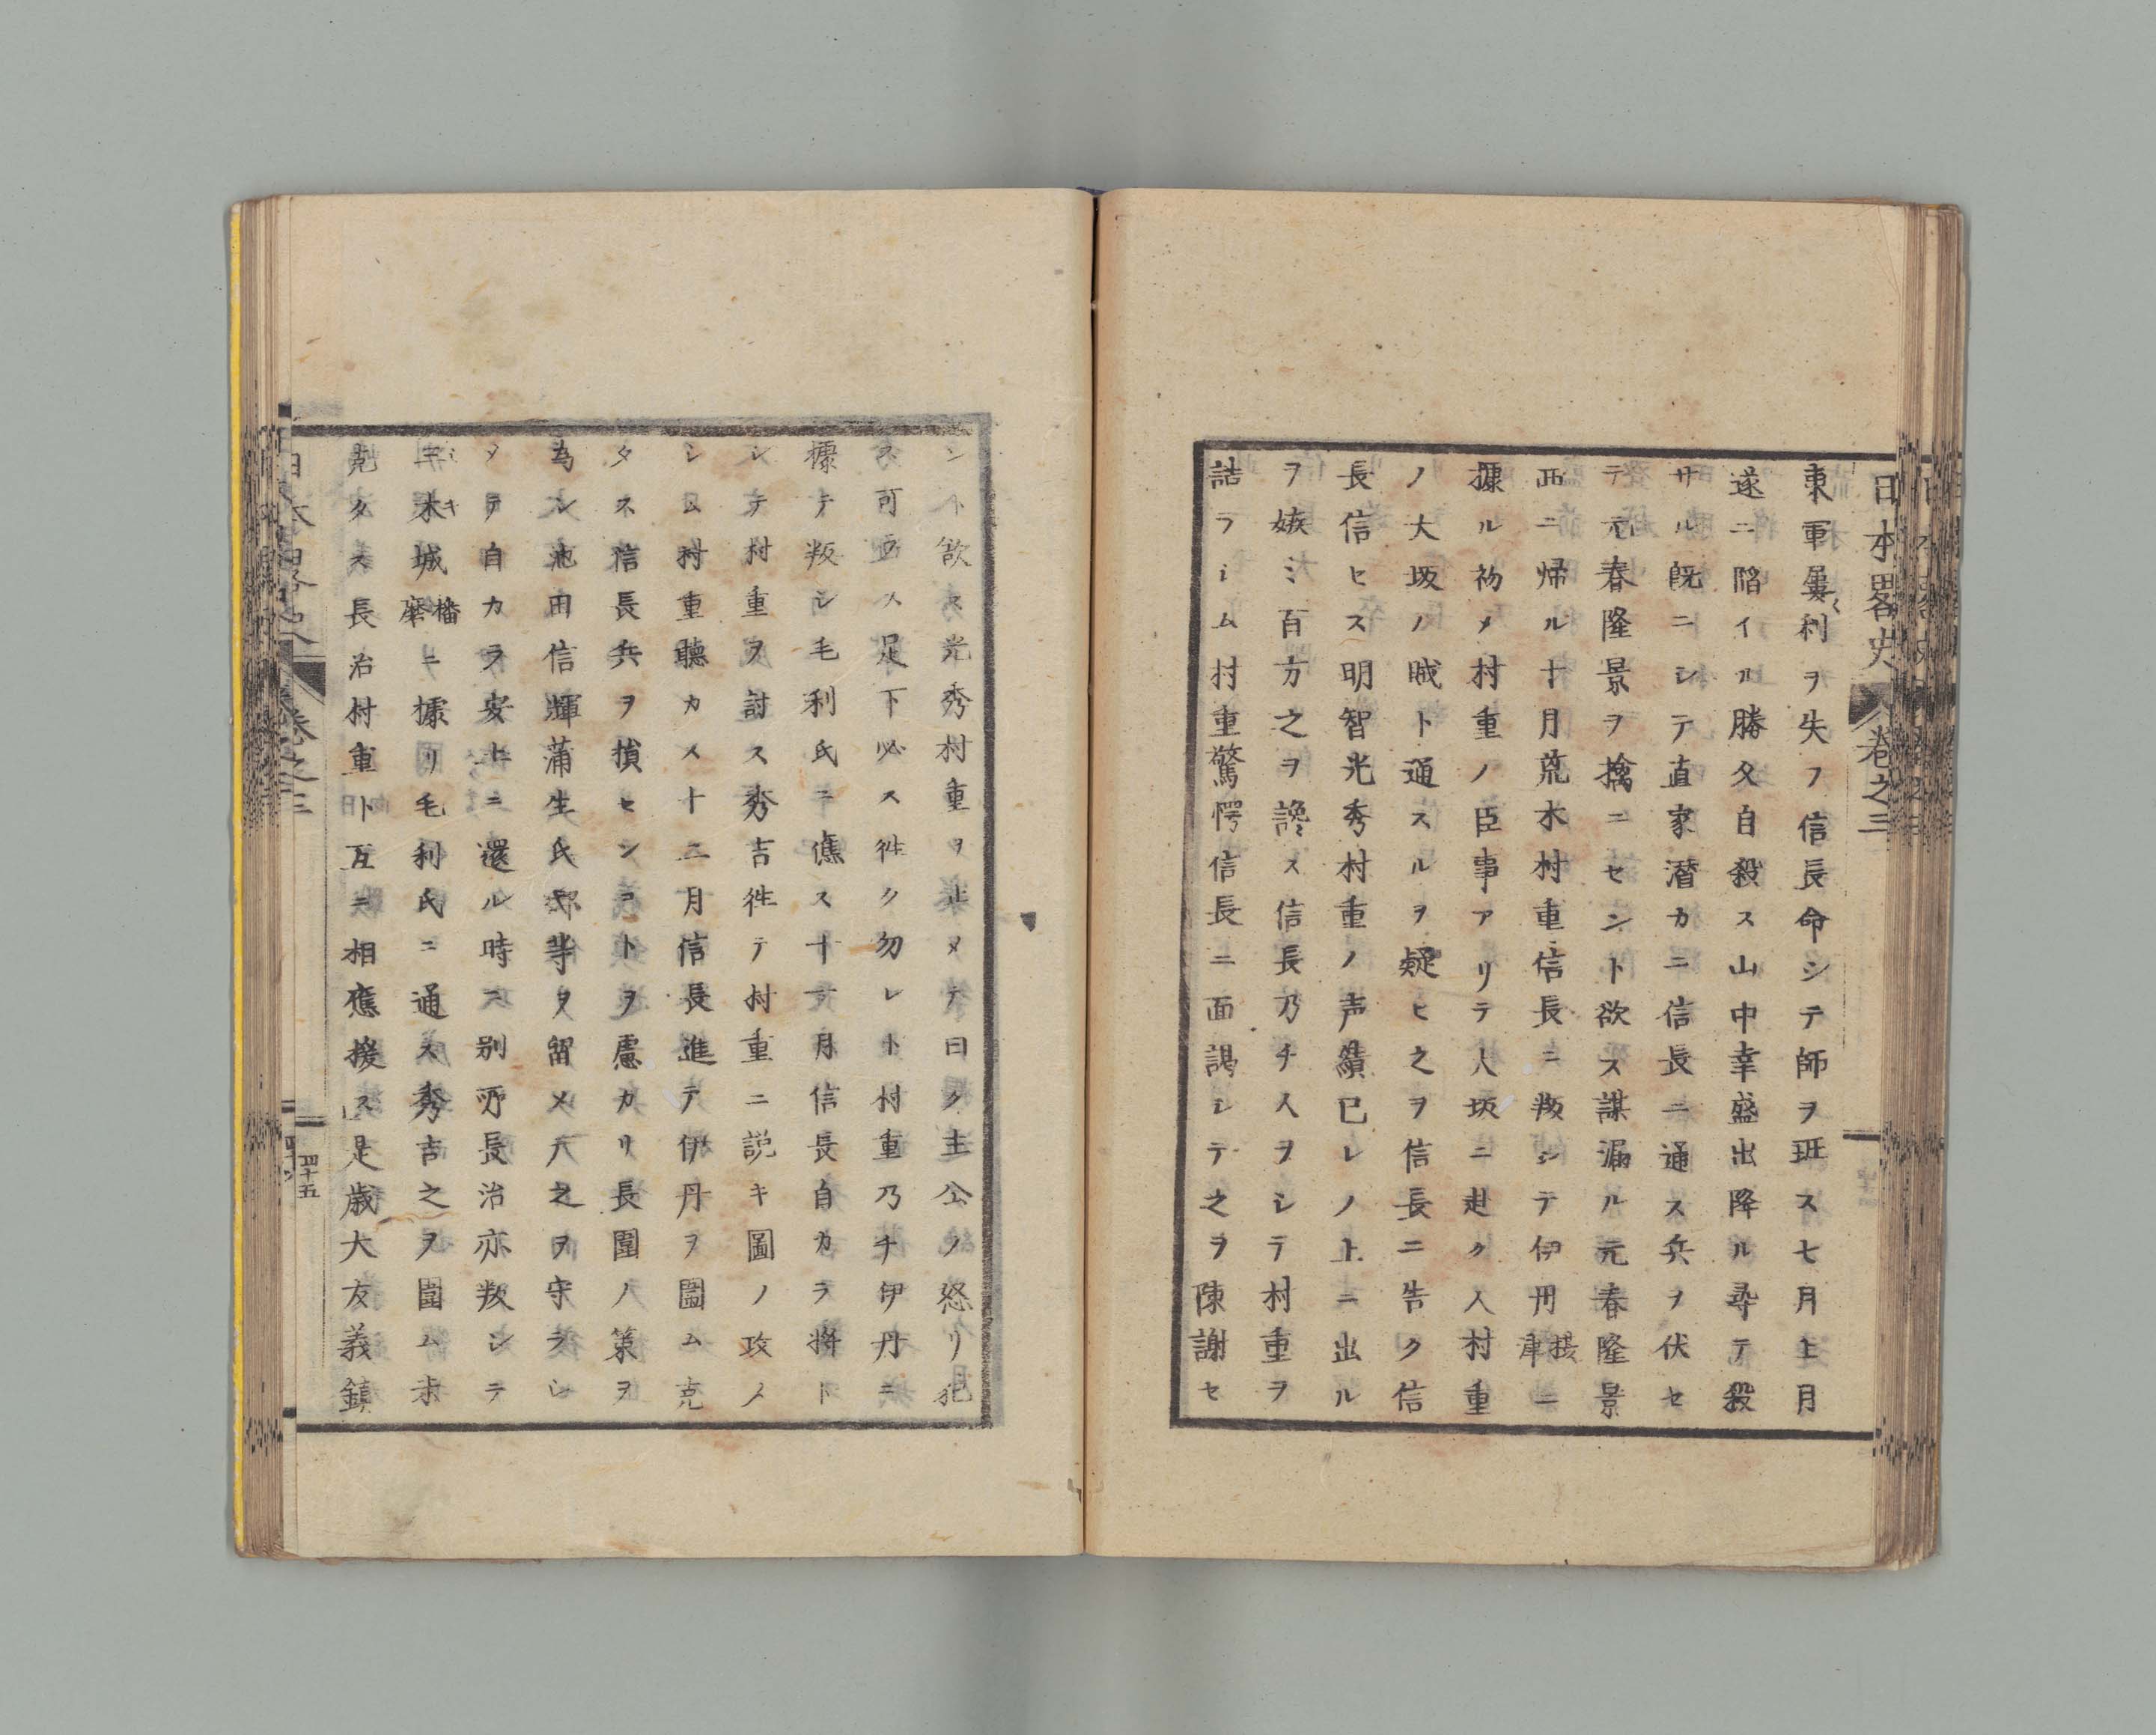 日本畧史 卷之三
東軍屢〻利ヲ失フ信長命シテ師ヲ班ス七月上月
遂ニ陷イル勝久自殺ス山中幸盛出降ル尋テ殺
サル既ニシテ直家潛カニ信長ニ通ス兵ヲ伏セ
テ元春隆景ヲ擒ニセント欲ス謀漏ル元春隆景
西ニ帰ル十月荒木村重信長ニ叛シテ伊丹攝津ニ
據ル初メ村重ノ臣事アリテ大坂ニ赴ク人村重
ノ大坂ノ賊ト通スルヲ疑ヒ之ヲ信長ニ告ク信
長信ヒス明智光秀村重ノ声績已レノ上ニ出ル
ヲ嫉ミ百方之ヲ讒ス信長乃チ人ヲシテ村重ヲ
詰ラシム村重驚愕信長ニ面謁シテ之ヲ陳謝セ
ント欲ス光秀村重ヲ止メテ曰ク主公ノ怒リ犯
ス可ラス足下必ス徃ク勿レト村重乃チ伊丹ニ
據テ叛シ毛利氏ニ應ス十一月信長自カラ將ト
シテ村重ヲ討ス秀吉徃テ村重ニ説キ圖ノ攻メ
シム村重聽カス十二月信長進テ伊丹ヲ圍ム克
タス信長兵ヲ損センコトヲ慮カリ長圍ノ策ヲ
為シ池田信輝蒲生氏郷等ヲ留メテ之ヲ守ラシ
メテ自カラ安土ニ還ル時ニ別所長治亦叛シテ
三木ミキ城播磨ニ據リ毛利氏ニ通ス秀吉之ヲ圍ム未
克タス長治村重ト互ニ相應援ス是歳大友義鎮
日本畧史 卷之三 四十五